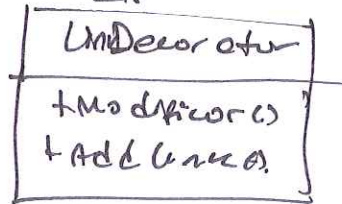 UnDecorator
+Modificar()
+Add Linea().